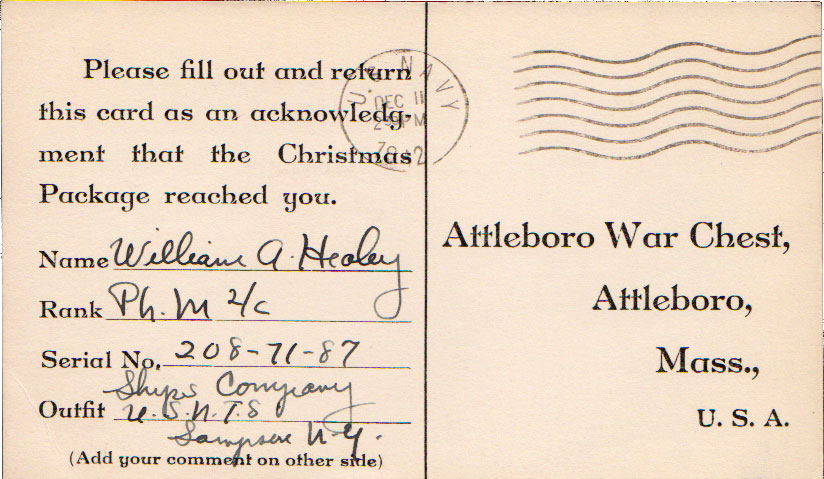 Please fill out and return
this card as an acknowledg-
ment that the Christmas
Package reached you.
Name William A. Healey
Rank Ph. M 2/c
Serial No. 208-71-87
Ships Company
Outfit U.S.N.T.S
Sampson N.Y.
(Add your comment on other side)
U.S. NAVY
DEC 11
PM
Attleboro War Chest,
Attleboro,
Mass.,
U. S. A.